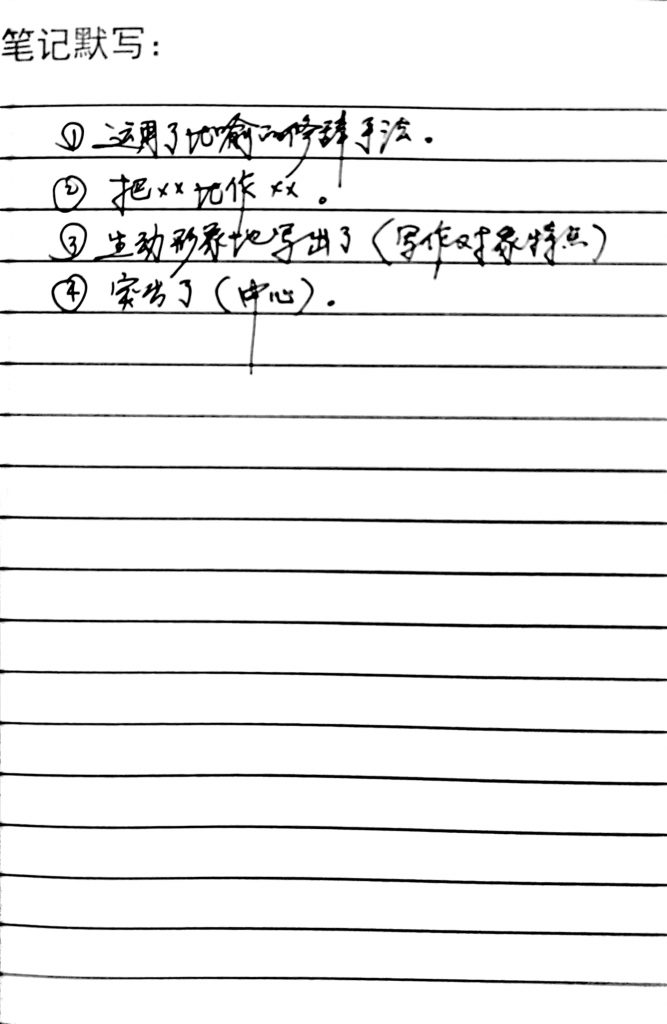 笔记默写：
① 运用了比喻的修辞手法。
② 把××比作××。
③ 生动形象地写出了（写作对象特点）
④ 突出了（中心）.